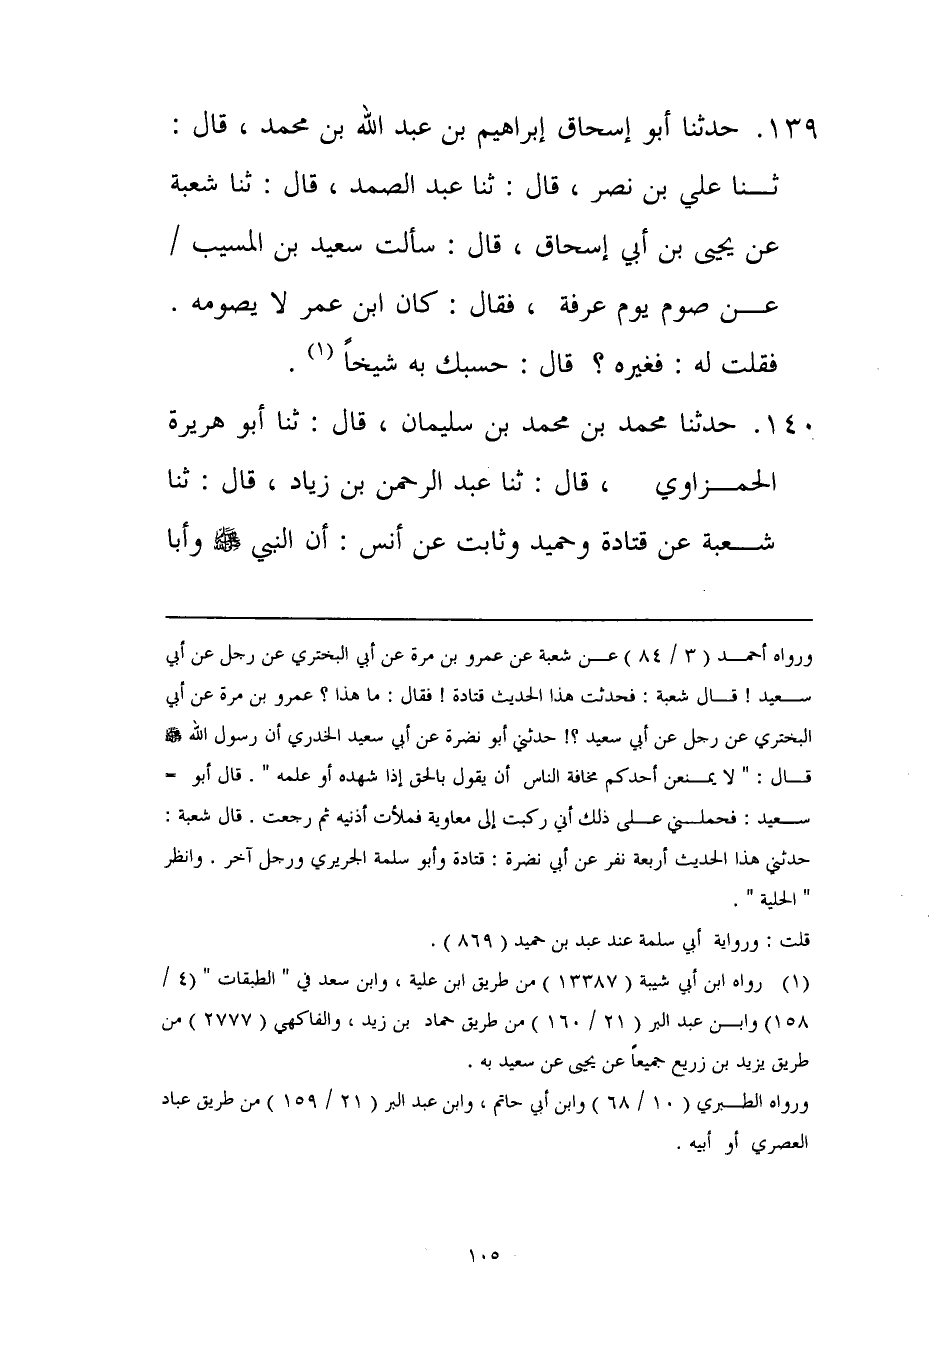 ١٣٩. حدثنا أبو إسحاق إبراهيم بن عبد الله بن محمد ، قال :
ثـــنا علي بن نصر ، قال : ثنا عبد الصمد ، قال : ثنا شعبة
عن يحيى بن أبي إسحاق ، قال : سألت سعيد بن المسيب /
عـــن صوم يوم عرفة ، فقال : كان ابن عمر لا يصومه .
فقلت له : فغيره ؟ قال : حسبك به شيخاً (١) .
١٤٠. حدثنا محمد بن محمد بن سليمان ، قال : ثنا أبو هريرة
الحمـــزاوي ، قال : ثنا عبد الرحمن بن زياد ، قال : ثنا
شـــعبة عن قتادة وحميد وثابت عن أنس : أن النبي ﷺ وأبا
ورواه أحمـــد ( ٣ / ٨٤ ) عـــن شعبة عن عمرو بن مرة عن أبي البختري عن رجل عن أبي
ســـعيد ! قـــال شعبة : فحدثت هذا الحديث قتادة ! فقال : ما هذا ؟ عمرو بن مرة عن أبي
البختري عن رجل عن أبي سعيد ؟! حدثني أبو نضرة عن أبي سعيد الخدري أن رسول الله ﷺ
قـــال : " لا يمـــنعن أحدكم مخافة الناس أن يقول بالحق إذا شهده أو علمه " . قال أبو =
ســـعيد : فحملـــني عـــلى ذلك أني ركبت إلى معاوية فملأت أذنيه ثم رجعت . قال شعبة :
حدثني هذا الحديث أربعة نفر عن أبي نضرة : قتادة وأبو سلمة الجريري ورجل آخر . وانظر
" الحلية " .
قلت : ورواية أبي سلمة عند عبد بن حميد ( ٨٦٩ ) .
(١) رواه ابن أبي شيبة ( ١٣٣٨٧ ) من طريق ابن علية ، وابن سعد في " الطبقات " (٤ /
١٥٨) وابـــن عبد البر ( ٢١ / ١٦٠ ) من طريق حماد بن زيد ، والفاكهي ( ٢٧٧٧ ) من
طريق يزيد بن زريع جميعاً عن يحيى عن سعيد به .
ورواه الطـــبري ( ١٠ / ٦٨ ) وابن أبي حاتم ، وابن عبد البر ( ٢١ / ١٥٩ ) من طريق عباد
العصري أو أبيه .
١٠٥